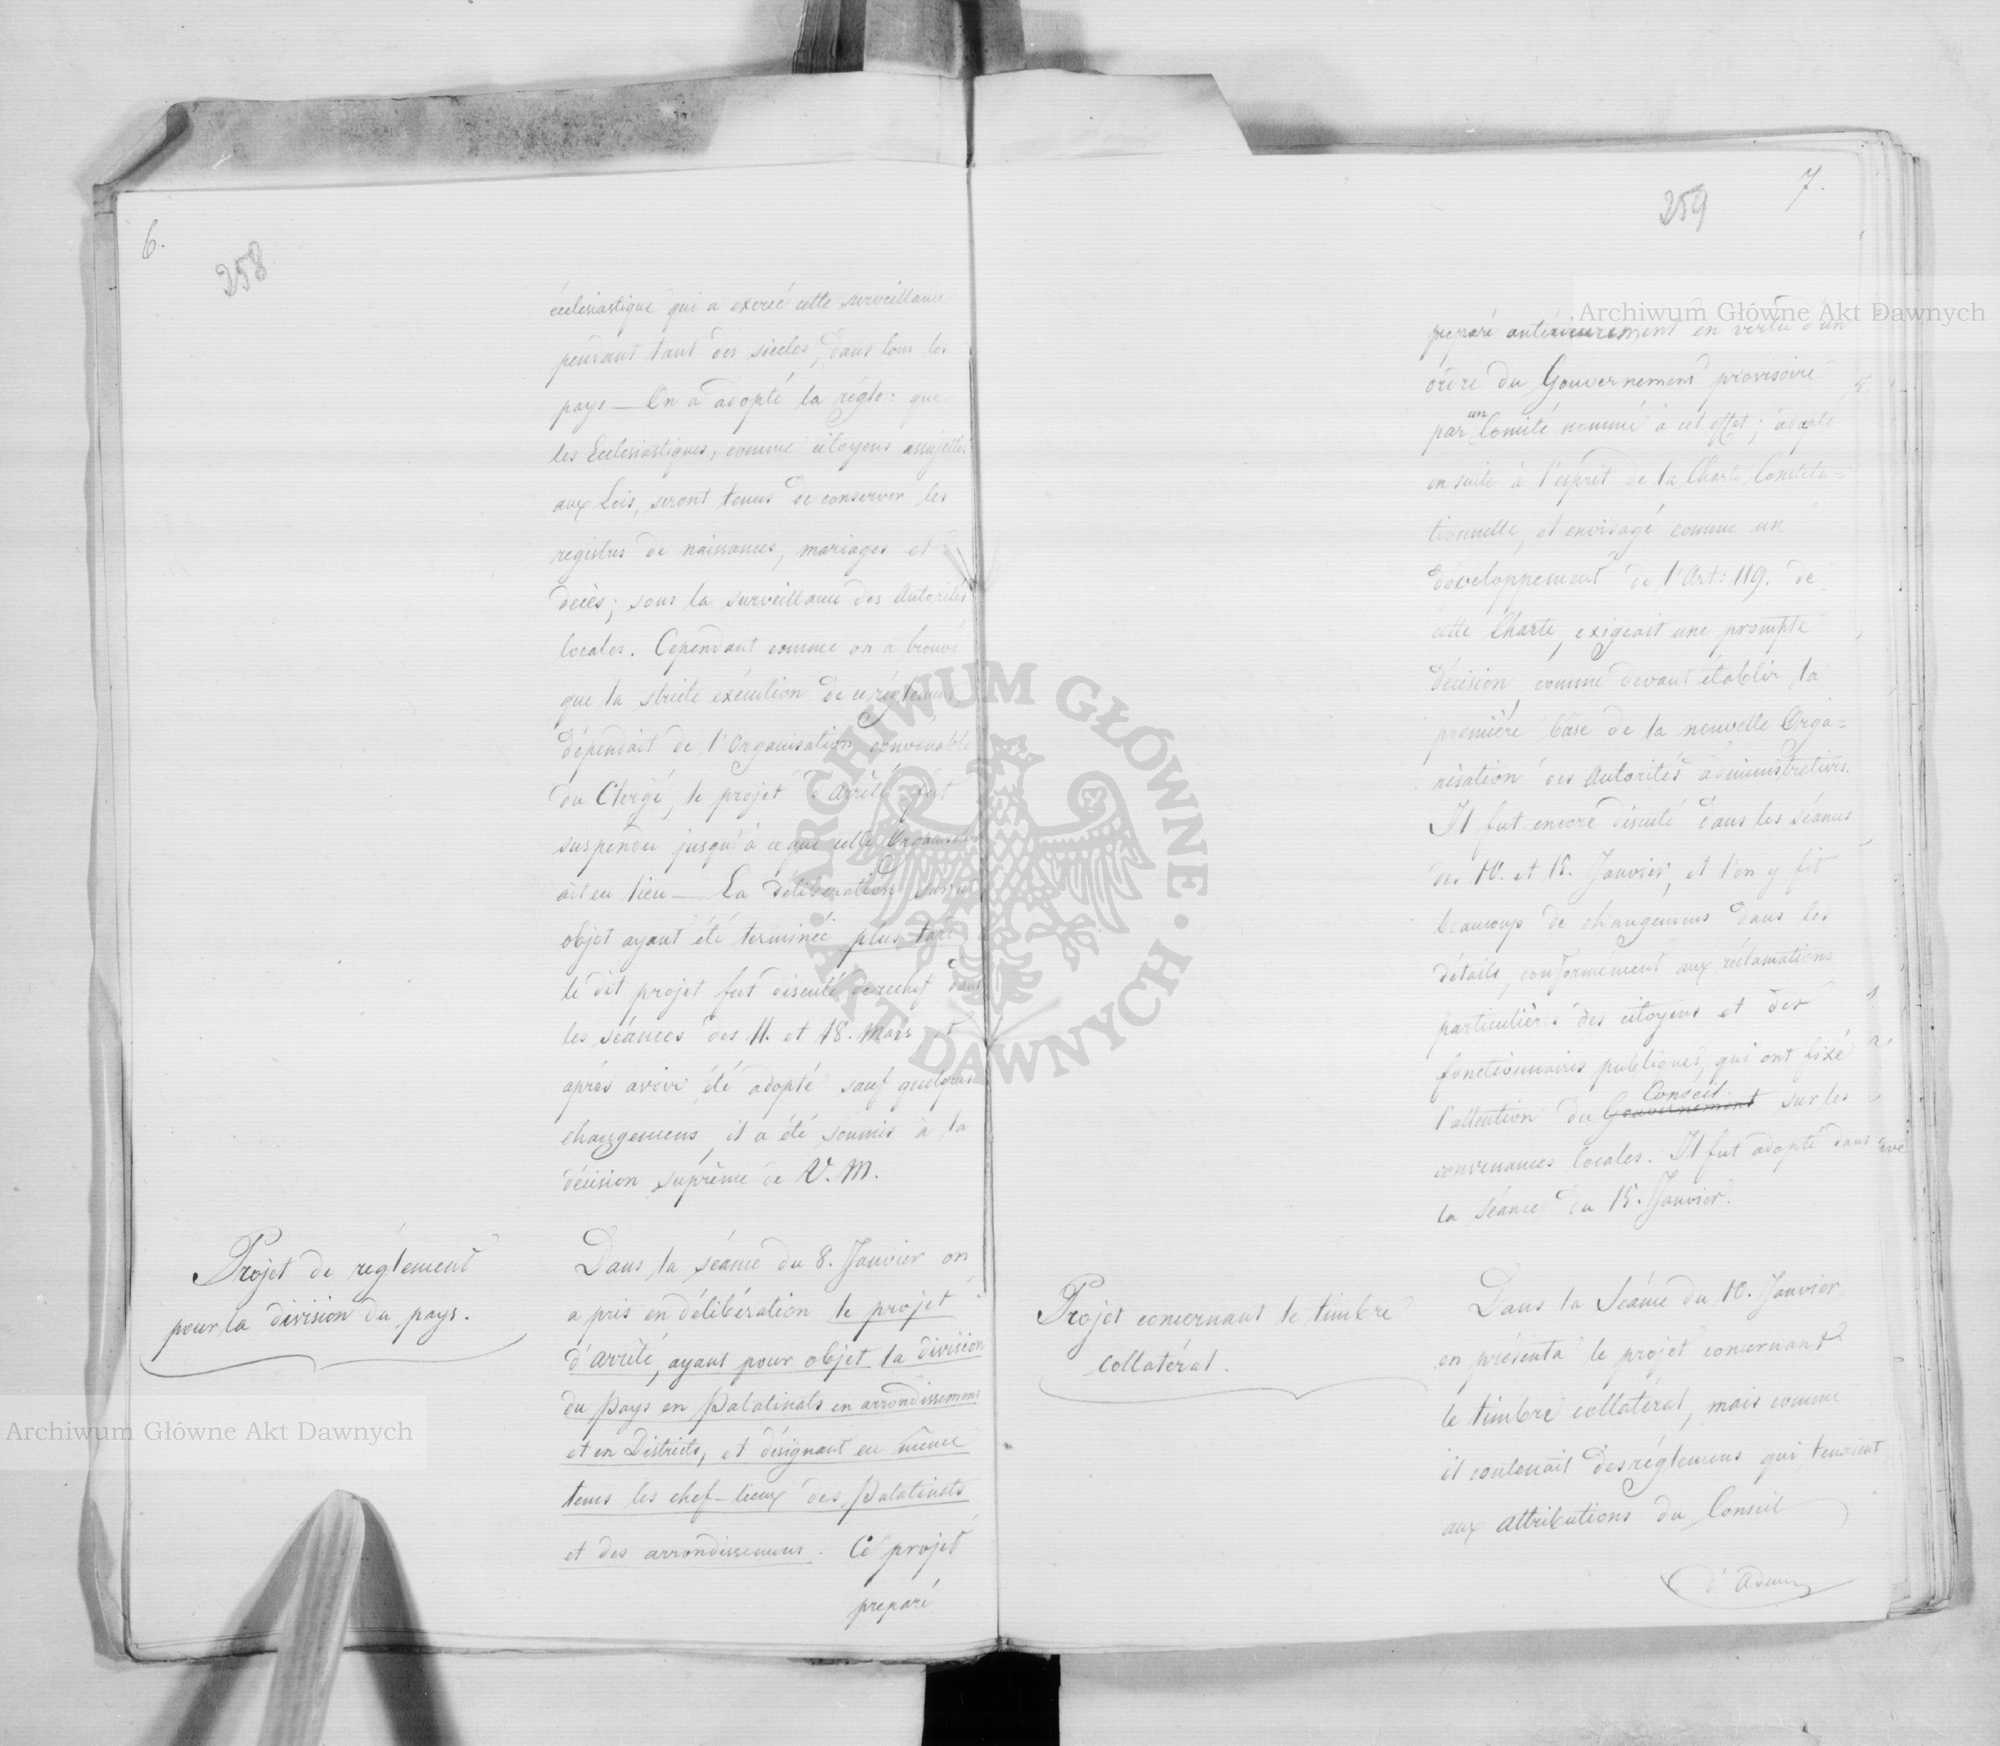 6.
258
écclesiastique qui a exercé cette surveillance
pendant tant des siècles, dans tous les
pays — On a adopté la régle: que
les Ecclesiastiques, comme citoyens assujettis
aux Lois, seront tenus de conserver les
registres de naissances, mariages et
décès; sous la surveillance des Autorités
locales. Cependant comme on a trouvé
que la stricte exécution de ce réglement
dépendait de l'Organisation convenable
du Clergé, le projet d'Arrêté fut
suspendu jusqu'à ce que cette Organisation
ait eu lieu — La déliberation sur cet
objet ayant été terminée plus tard
le dit projet fut discuté derechef dans
les séances des 11. et 18. Mars et
après avoir été adopté sauf quelques
changemens, il a été soumis à la
décision suprême de V. M.
Projet de réglement
pour la division du pays.
Dans la séance du 8. Janvier on
a pris en délibération le projet
d'arrêté, ayant pour objet la division
du Pays en Palatinats en arrondissemens
et en Districts, et désignant en même
tems les chef-lieux des Palatinats
et des arrondissemens. Ce projet
preparé
259
7.
preparé antérieurement en vertu d'un
ordre du Gouvernement provisoire
par un Comité nommé à cet effet; adapté
en suite à l'esprit de la Charte Constitu=
tionnelle, et envisagé comme un
développement de l'Art: 119. de
cette Charte, exigeait une prompte
décision comme devant établir la
première base de la nouvelle Orga=
nisation des Autorités administratives.
Il fut encore discuté dans les séances
des 10. et 15. Janvier, et l'on y fit
beaucoup de changemens dans les
détails, conformément aux réclamations
particulières des citoyens et des
fonctionnaires publiques, qui ont fixé
l'attention du Gouvernement Conseil sur les
convenances locales. Il fut adopté dans
la séance du 15. Janvier.
Projet concernant le timbre
collatéral.
Dans la Séance du 10. Janvier
on présenta le projet concernant
le timbre collatéral, mais comme
il contenait des réglemens qui tenoient
aux attributions du Conseil
d'Adm
Archiwum Główne Akt Dawnych
Archiwum Główne Akt Dawnych
ARCHIWUM GŁÓWNE · AKT DAWNYCH ·